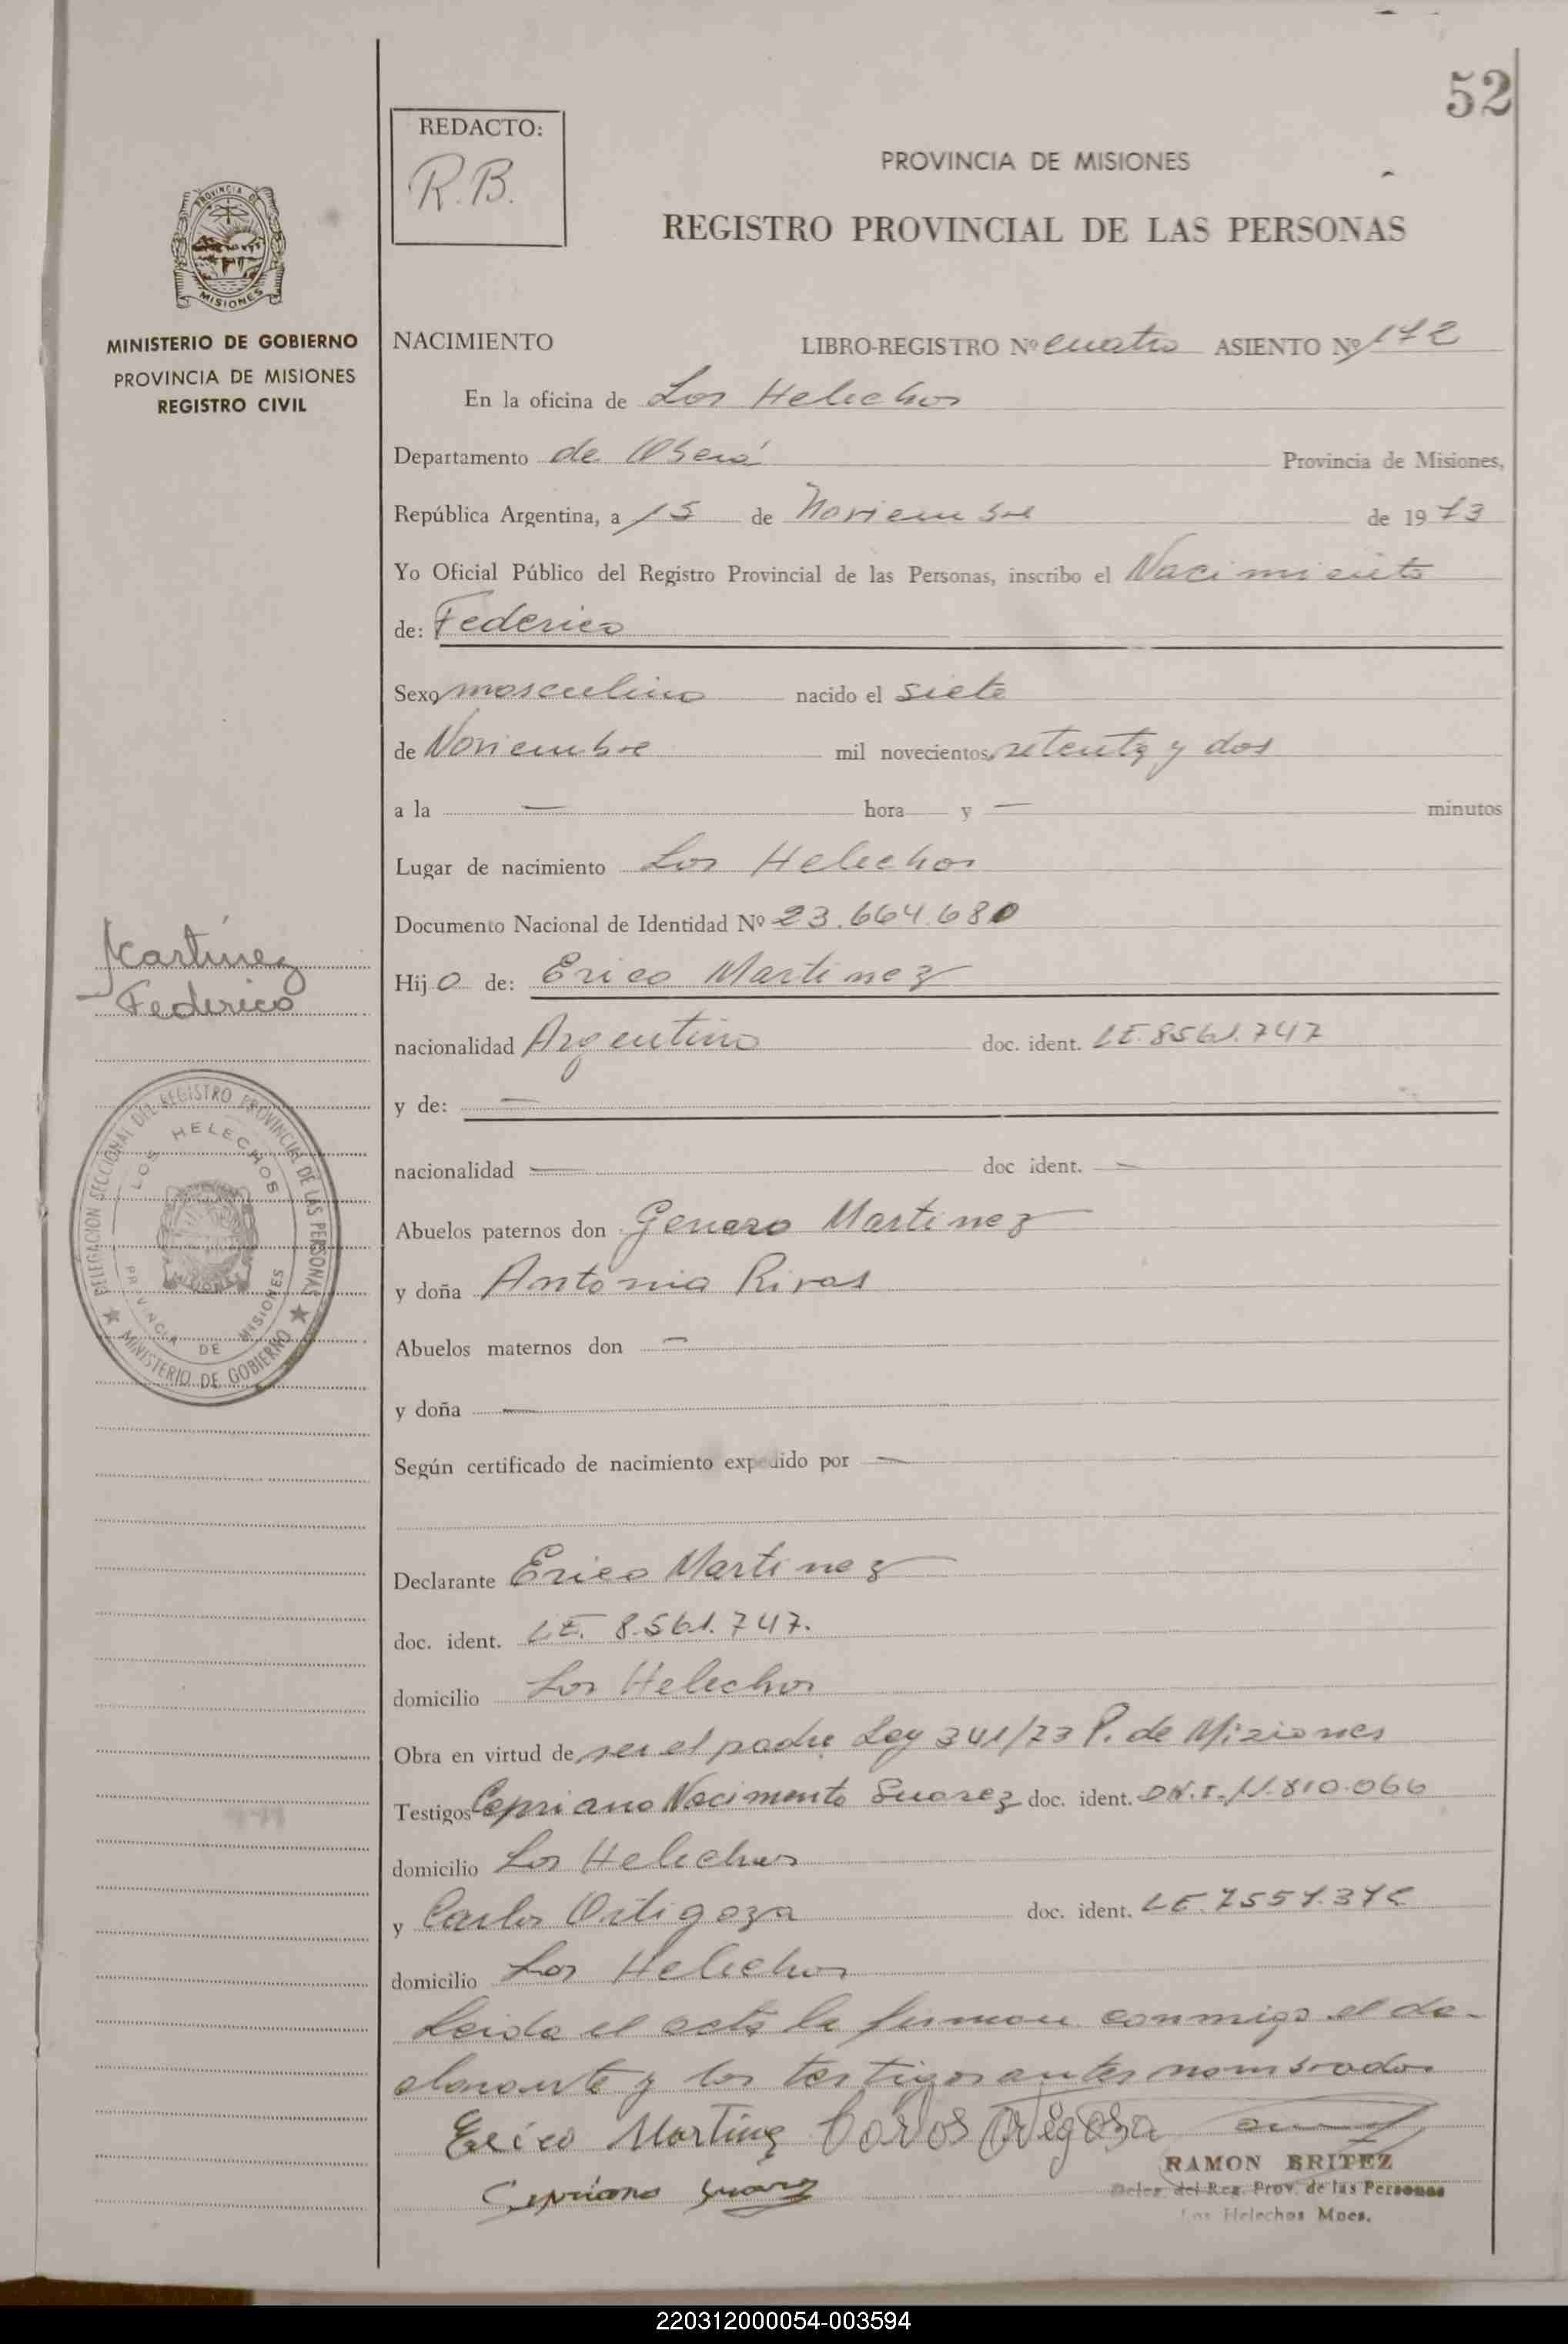 52
REDACTO:
R.B.
PROVINCIA DE MISIONES
REGISTRO PROVINCIAL DE LAS PERSONAS
PROVINCIA DE
MISIONES
MINISTERIO DE GOBIERNO
PROVINCIA DE MISIONES
REGISTRO CIVIL
NACIMIENTO LIBRO-REGISTRO Nº cuatro ASIENTO Nº 172
En la oficina de Los Helechos
Departamento de Oberá Provincia de Misiones,
República Argentina, a 15 de Noviembre de 1973
Yo Oficial Público del Registro Provincial de las Personas, inscribo el Nacimiento
de: Federico
Sexo masculino nacido el siete
de Noviembre mil novecientos setenta y dos
a la — hora y — minutos
Lugar de nacimiento Los Helechos
Documento Nacional de Identidad Nº 23.664.680
Martinez
Federico
Hijo de: Erico Martinez
nacionalidad Argentino doc. ident. LE. 8561.747
y de: —
nacionalidad — doc ident. —
DELEGACION SECCIONAL DEL REGISTRO PROVINCIAL DE LAS PERSONAS
LOS HELECHOS
PROVINCIA DE MISIONES
MINISTERIO DE GOBIERNO
Abuelos paternos don Genaro Martinez
y doña Antonia Rivas
Abuelos maternos don —
y doña —
Según certificado de nacimiento expedido por —
Declarante Erico Martinez
doc. ident. LE. 8.561.747.
domicilio Los Helechos
Obra en virtud de ser el padre Ley 341/73 P. de Misiones
Testigos Cepriano Nacimento Suarez doc. ident. DN.I. 11.810.066
domicilio Los Helechos
y Carlos Ortigoza doc. ident. LE.
domicilio Los Helechos
Leida el acta la firman conmigo el de-
clarante y los testigos antes nombrados
Erico Martinez Carlos Ortegoza
Cepriano Suarez
RAMON BRITEZ
Deleg. del Reg. Prov. de las Personas
Los Helechos Mnes.
220312000054-003594